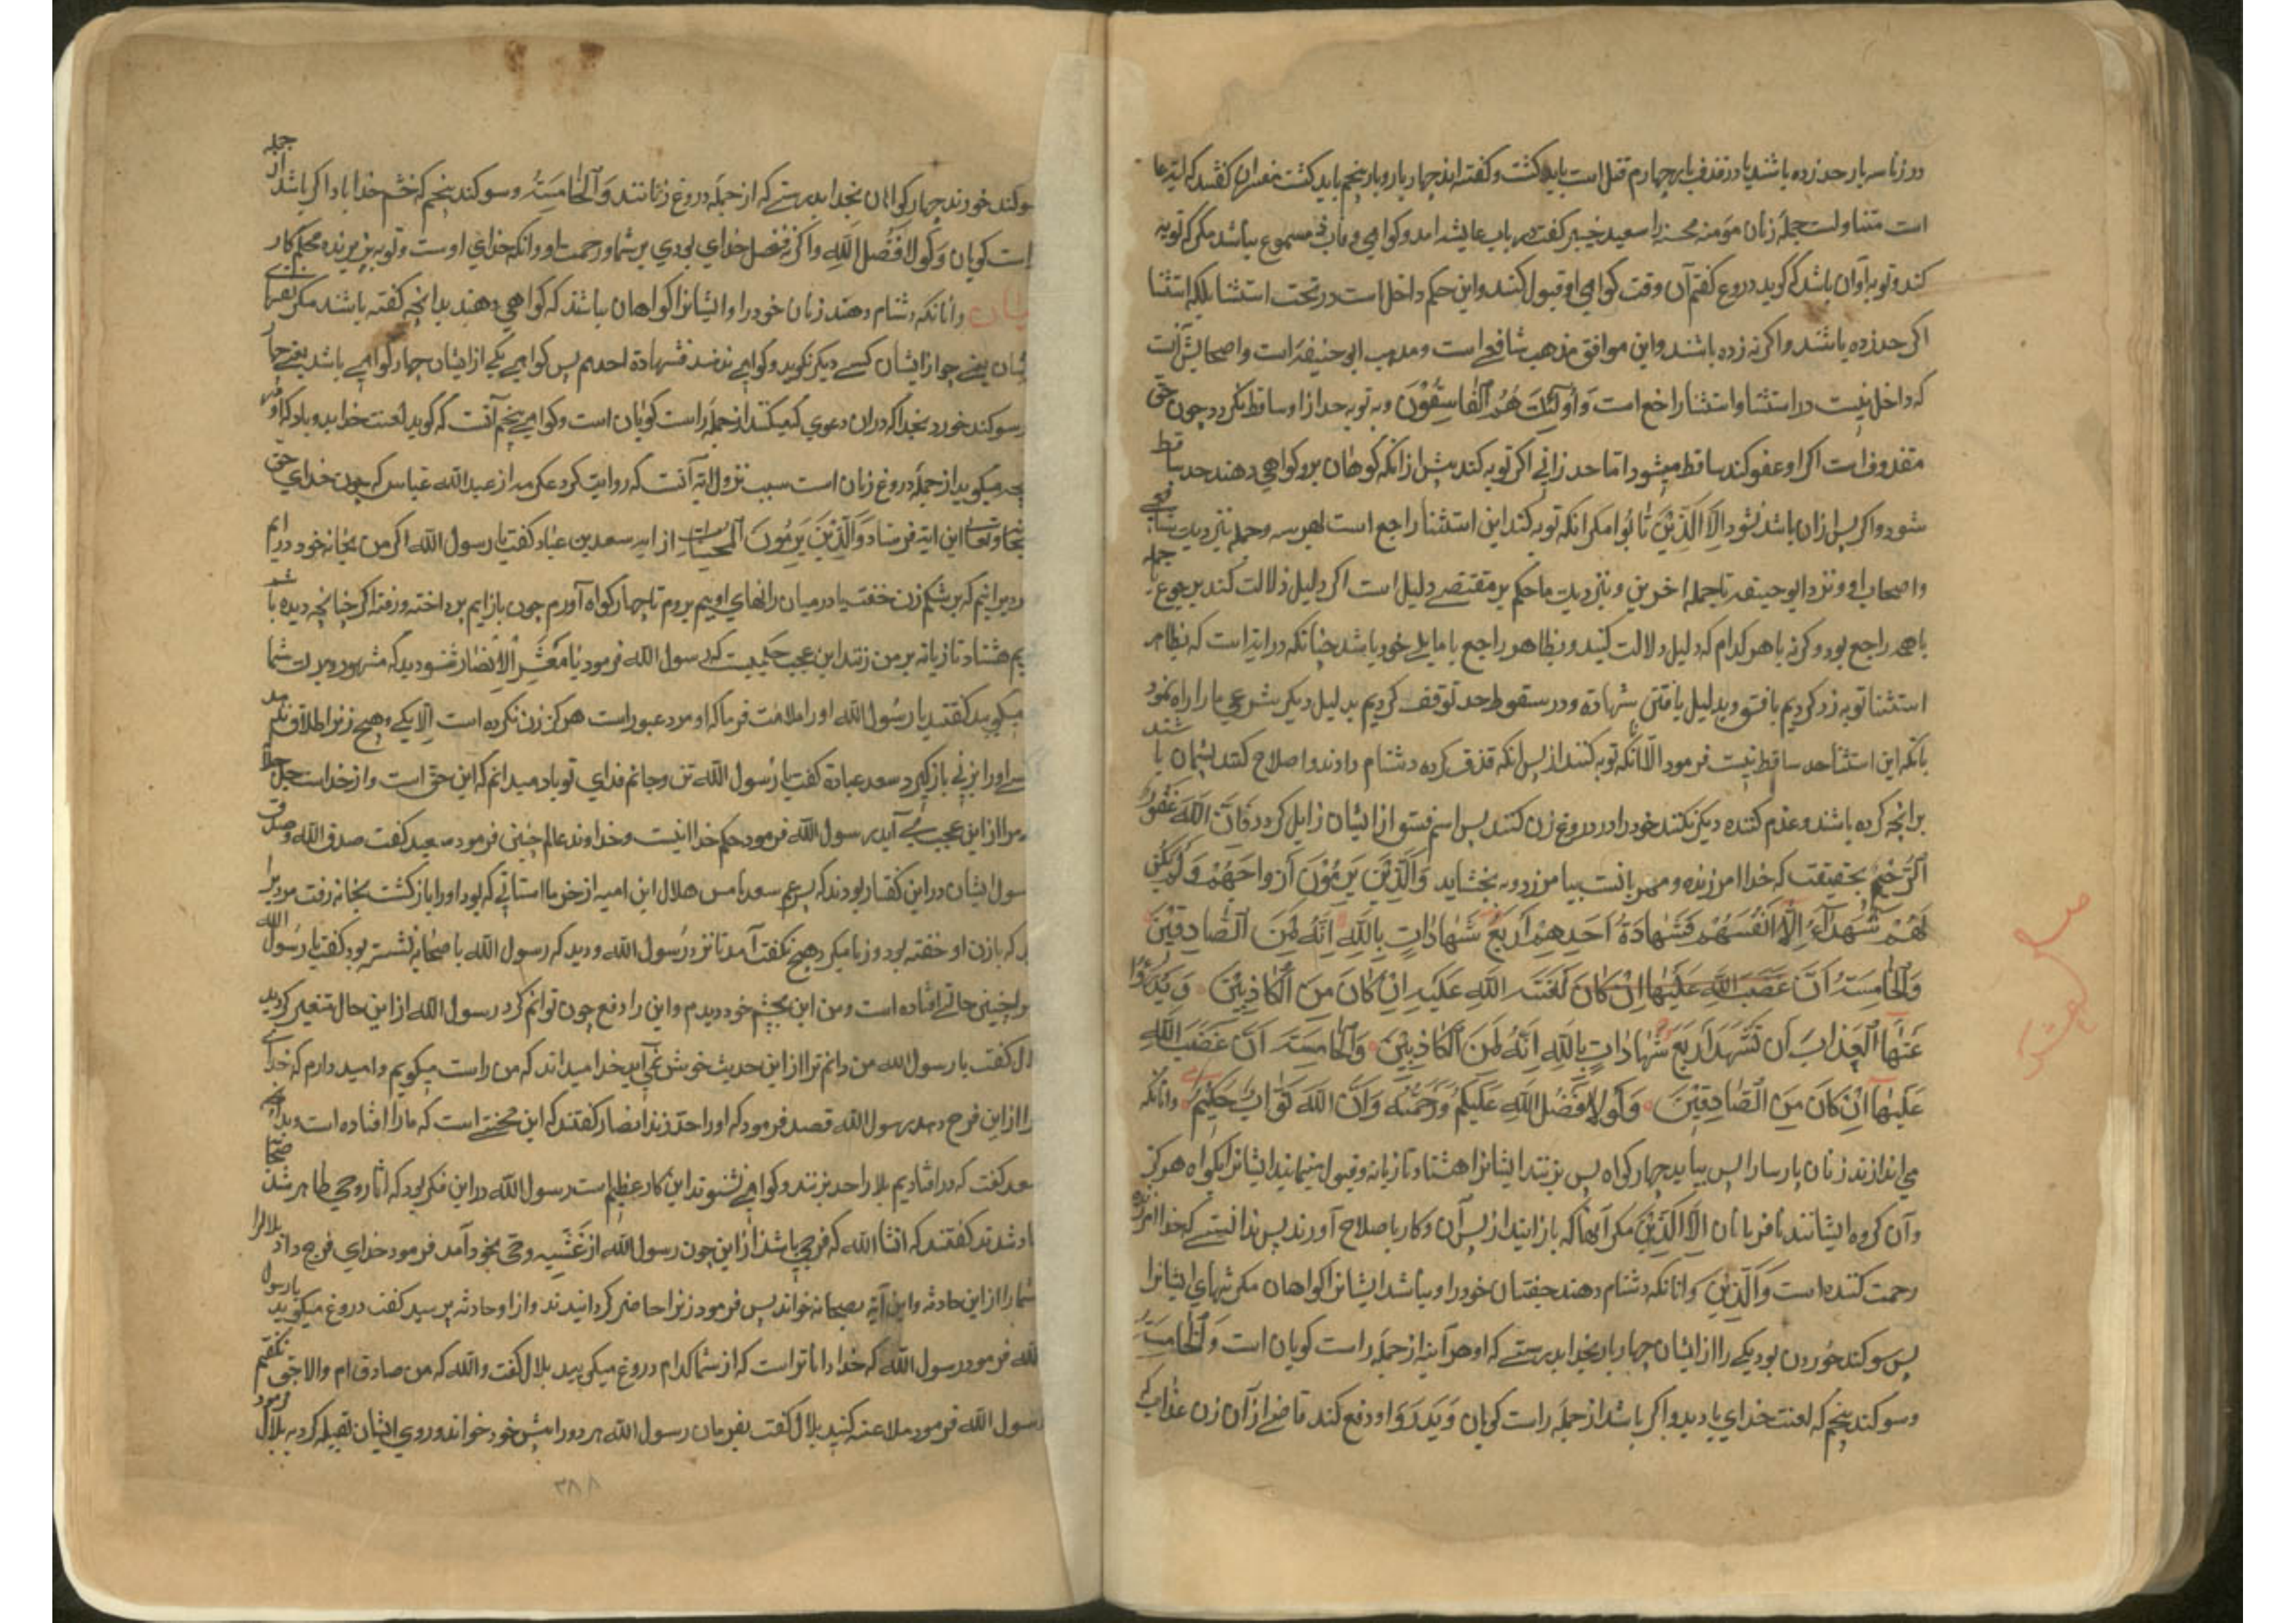 در زنا سه بار حد زده باشند یا در قذف بار چهارم قتل است باید کشت و کفته اند چهار بار و بار پنجم باید کشت مفسران کفتند که ایة عا
است متناولست جمله زنان مؤمنه محصنه را سعید خیبر کفت در باب عایشه امد و کواهی قاذف مسموع نباشد مکر که توبه
کند و توبه او آن باشد که کوید دروغ کفتم آن وقت کواهی او قبول کنند و این حکم داخل است در تحت استثنا بلکه استثنا
اکر حد زده باشند و اکر نه زده باشند و این موافق مذهب شافعی است و مذهب ابو حنیفه است و اصحابش آنست
که داخل نیست در استثنا و استثنا راجع است وَ أُولَٰئِكَ هُمُ الْفَاسِقُونَ و به توبه حد از او ساقط نکردد چون حق
مقذوف است اکر او عفو کند ساقط میشود اما حد زانی اکر توبه کند پیش از انکه کوهان برو کواهی دهند حد ساقط
شود و اکر پس از ان باشد نشود اِلَّا الَّذِیْنَ تَابُوا مکر انکه توبه کند این استثنا راجع است بهر سه جمله نزدیک شافعی
و اصحاب او و نزد ابو حنیفه تا جمله اخرین و نزدیک ما حکم بر مقتضی دلیل است اکر دلیل دلالت کند برجوع با جمله
باهمه راجع بود و کرنه باهر کدام که دلیل دلالت کند و بظاهر راجع با مایلی خود باشد چنانکه در ایة است که بظاهر
استثنا توبه زد کردیم بافسق و بدلیل یافتن شهادة و در سقوط حد توقف کردیم بدلیل دیکر شرعی ما را راه نمود
بانکه این استثنا حد ساقط نیست فرمود الا انانکه توبه کنند از پس انکه قذف کرده دشنام دادند و اصلاح کنند پشیمان باشند
بر انچه کرده باشد و عزم کننده دیکر نکنند خود را در دروغ زن کنند پس اسم فسق از ایشان زایل کردد فَاِنَّ اللّٰهَ غَفُورٌ
الرَّحِیْم بحقیقت که خدا امرزنده و مهربانست بیامرزد و به بخشاید وَالَّذِیْنَ یَرْمُوْنَ اَزْوَاجَهُمْ وَلَمْ یَکُنْ
لَهُمْ شُهَدَآءُ اِلَّا اَنْفُسُهُمْ فَشَهَادَةُ اَحَدِهِمْ اَرْبَعُ شَهَادَاتٍ بِاللّٰهِ اِنَّهُ لَمِنَ الصَّادِقِیْنَ
وَالْخَامِسَةُ اَنَّ غَضَبَ اللّٰهِ عَلَیْهَا اِنْ کَانَ لَعْنَتَ اللّٰهِ عَلَیْهِ اِنْ کَانَ مِنَ الْکَاذِبِیْنَ وَ یَدْرَؤُا
عَنْهَا الْعَذَابَ اَنْ تَشْهَدَ اَرْبَعَ شَهَادَاتٍ بِاللّٰهِ اِنَّهُ لَمِنَ الْکَاذِبِیْنَ وَالْخَامِسَةَ اَنَّ غَضَبَ اللّٰهِ
عَلَیْهَا اِنْ کَانَ مِنَ الصَّادِقِیْنَ وَلَوْلَا فَضْلُ اللّٰهِ عَلَیْکُمْ وَرَحْمَتُهُ وَاَنَّ اللّٰهَ تَوَّابٌ حَکِیْمٌ وانانکه
می اندازند زنان پارسا را پس نیایند چهار کواه پس بزنند ایشانرا هشتاد تازیانه و قبول منمایند ایشانرا کواه هرکز
و آن کروه ایشانند نافرمانان اِلَّا الَّذِیْنَ مکر آنها که باز ایند از پس آن و کار باصلاح آورند پس بدانیستی که خدا امرزنده
رحمت کننده است وَالَّذِیْنَ وانانکه دشنام دهند جفتان خود را و نباشد ایشانرا کواهان مکر تنهای ایشانرا
پس سوکند خوردن بود یکی را از ایشان چهار بار بخدا بدرستی که او هر آینه از جمله راست کویان است وَالْخَامِسَةُ
و سوکند پنجم که لعنت خدای باد بدو اکر باشد از جمله راست کویان وَ یَدْرَؤُا و دفع کند قاضی از آن زن عذاب که
سوکند خورند چهار کواهان بخدا بدرستی که از جمله دروغ زنانند وَالْخَامِسَةُ و سوکند پنجم که خشم خدا باد اکر باشد از جمله
است کویان وَلَوْلَا فَضْلُ اللّٰهِ و اکرنه فضل خدای بودی بر شما و رحمت او و انکه خدای اوست و توبه پذیرنده محکم کار
یان وانانکه دشنام دهند زنان خود را و ایشانرا کواهان نباشند که کواهی دهند بدانچه کفته باشند مکر
شان یعنی جواز ایشان کسی دیکر نکوید و کواهی ندهد فشهادة احدهم پس کواهی یکی از ایشان چهار کواهی باشد یعنی چهار
سوکند خورد بخدا که دران دعوی که میکند از جمله راست کویان است و کواهی پنجم آنست که کوید لعنت خدا بدو باد که او
چه میکوید از جمله دروغ زنان است سبب نزول ایة آنست که روایت کرد عکرمه از عبد الله عباس که چون خدای حق
سبحانه و تعالی این ایة فرستاد وَالَّذِیْنَ یَرْمُوْنَ الْمُحْصَنَاتِ سعد بن عباد کفت یا رسول الله اکر من بخانه خود درایم
مردیرا بینم که بر شکم زن خفته یا در میان رانهای او بینم بروم تا چهار کواه آورم چون باز ایم پرداخته و رفته اکر چنانچه دیده باشد
یم هشتاد تازیانه بر من زنند این عجب حکمیست که رسول الله فرمود یَا مَعْشَرَ الْاَنْصَار شنودید که مشهور و بزرک شما
میکوید کفتند یا رسول الله او را ملامت فرما که او مرد غیور است هرکز زن نکرده است الا یکی و هیچ زنرا طلاق
سعد عبادة کفت یا رسول الله تن و جانم فدای تو باد میدانم که این حق است و از خداست
مرا از این عجب می آید رسول الله فرمود حکم خدا اینست و خداوند عالم چنین فرمود سعید کفت صدق الله و صدق
سول ایشان در این کفتار بودند که پسر عم سعد نامش هلال ابن امیه از خرما استانی که بود او را باز کشت بخانه رفت مردیرا
ید که بازن او خفته بود و زنا میکرد هیچ نکفت آمد تا نزد رسول الله و دید که رسول الله با صحابه نشسته بود کفت یا رسول الله
مرا چنین حالتی افتاده است و من این بچشم خود دیدم و این را دفع چون توانم کرد رسول الله از این حال متغیر کردید
لال کفت یا رسول الله من دانم ترا از این حدیث خوش نمی آید خدا میداند که من راست میکویم و امید دارم که خدای
را از این فرج دهد رسول الله قصد فرمود که او را حد زند انصار کفتند که این محنتی است که ما را افتاده است
سعد کفت که در افتادیم بلا را حد بزنند و کواهی نشنوند این کار عظیم است رسول الله در این فکر بود که اثار وحی ظاهر شد صحابه
شاد شدند کفتند که انشا الله که فرجی باشد از این چون رسول الله از غَشْیِه وحی بخود آمد فرمود خدای فرج داد بلالرا
شما را از این حادثه و این آیة بصحابه خواند پس فرمود زنرا حاضر کردانیدند و از او حادثه پرسید کفت دروغ میکوید یا رسول
الله فرمود رسول الله که خدا داناتر است که از شما کدام دروغ میکویید بلال کفت والله که من صادق ام و الا حق نکفتم
رسول الله فرمود ملاعنه کنید بلال کفت بفرمان رسول الله هر دو را پیش خود خواند و روی ایشان بقبله کرد به بلال فرمود
۳۸۸